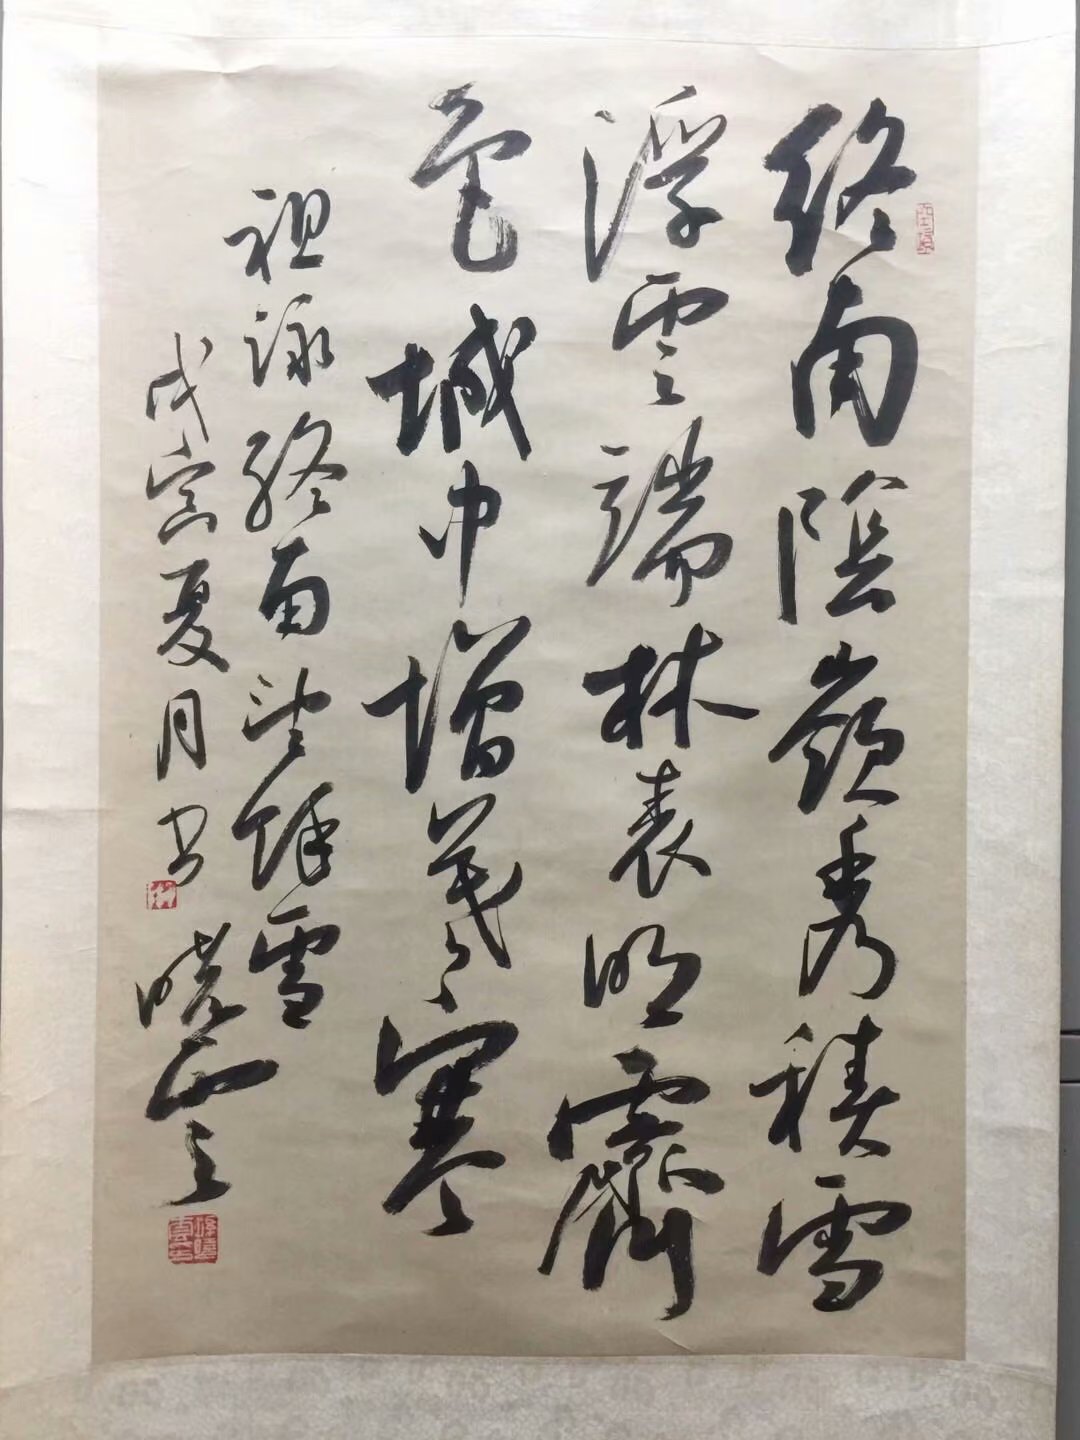 終南陰嶺秀積雪
浮雲端林表明霽
色城中增暮寒
祖詠終南望餘雪
戊寅夏月书 曉雲